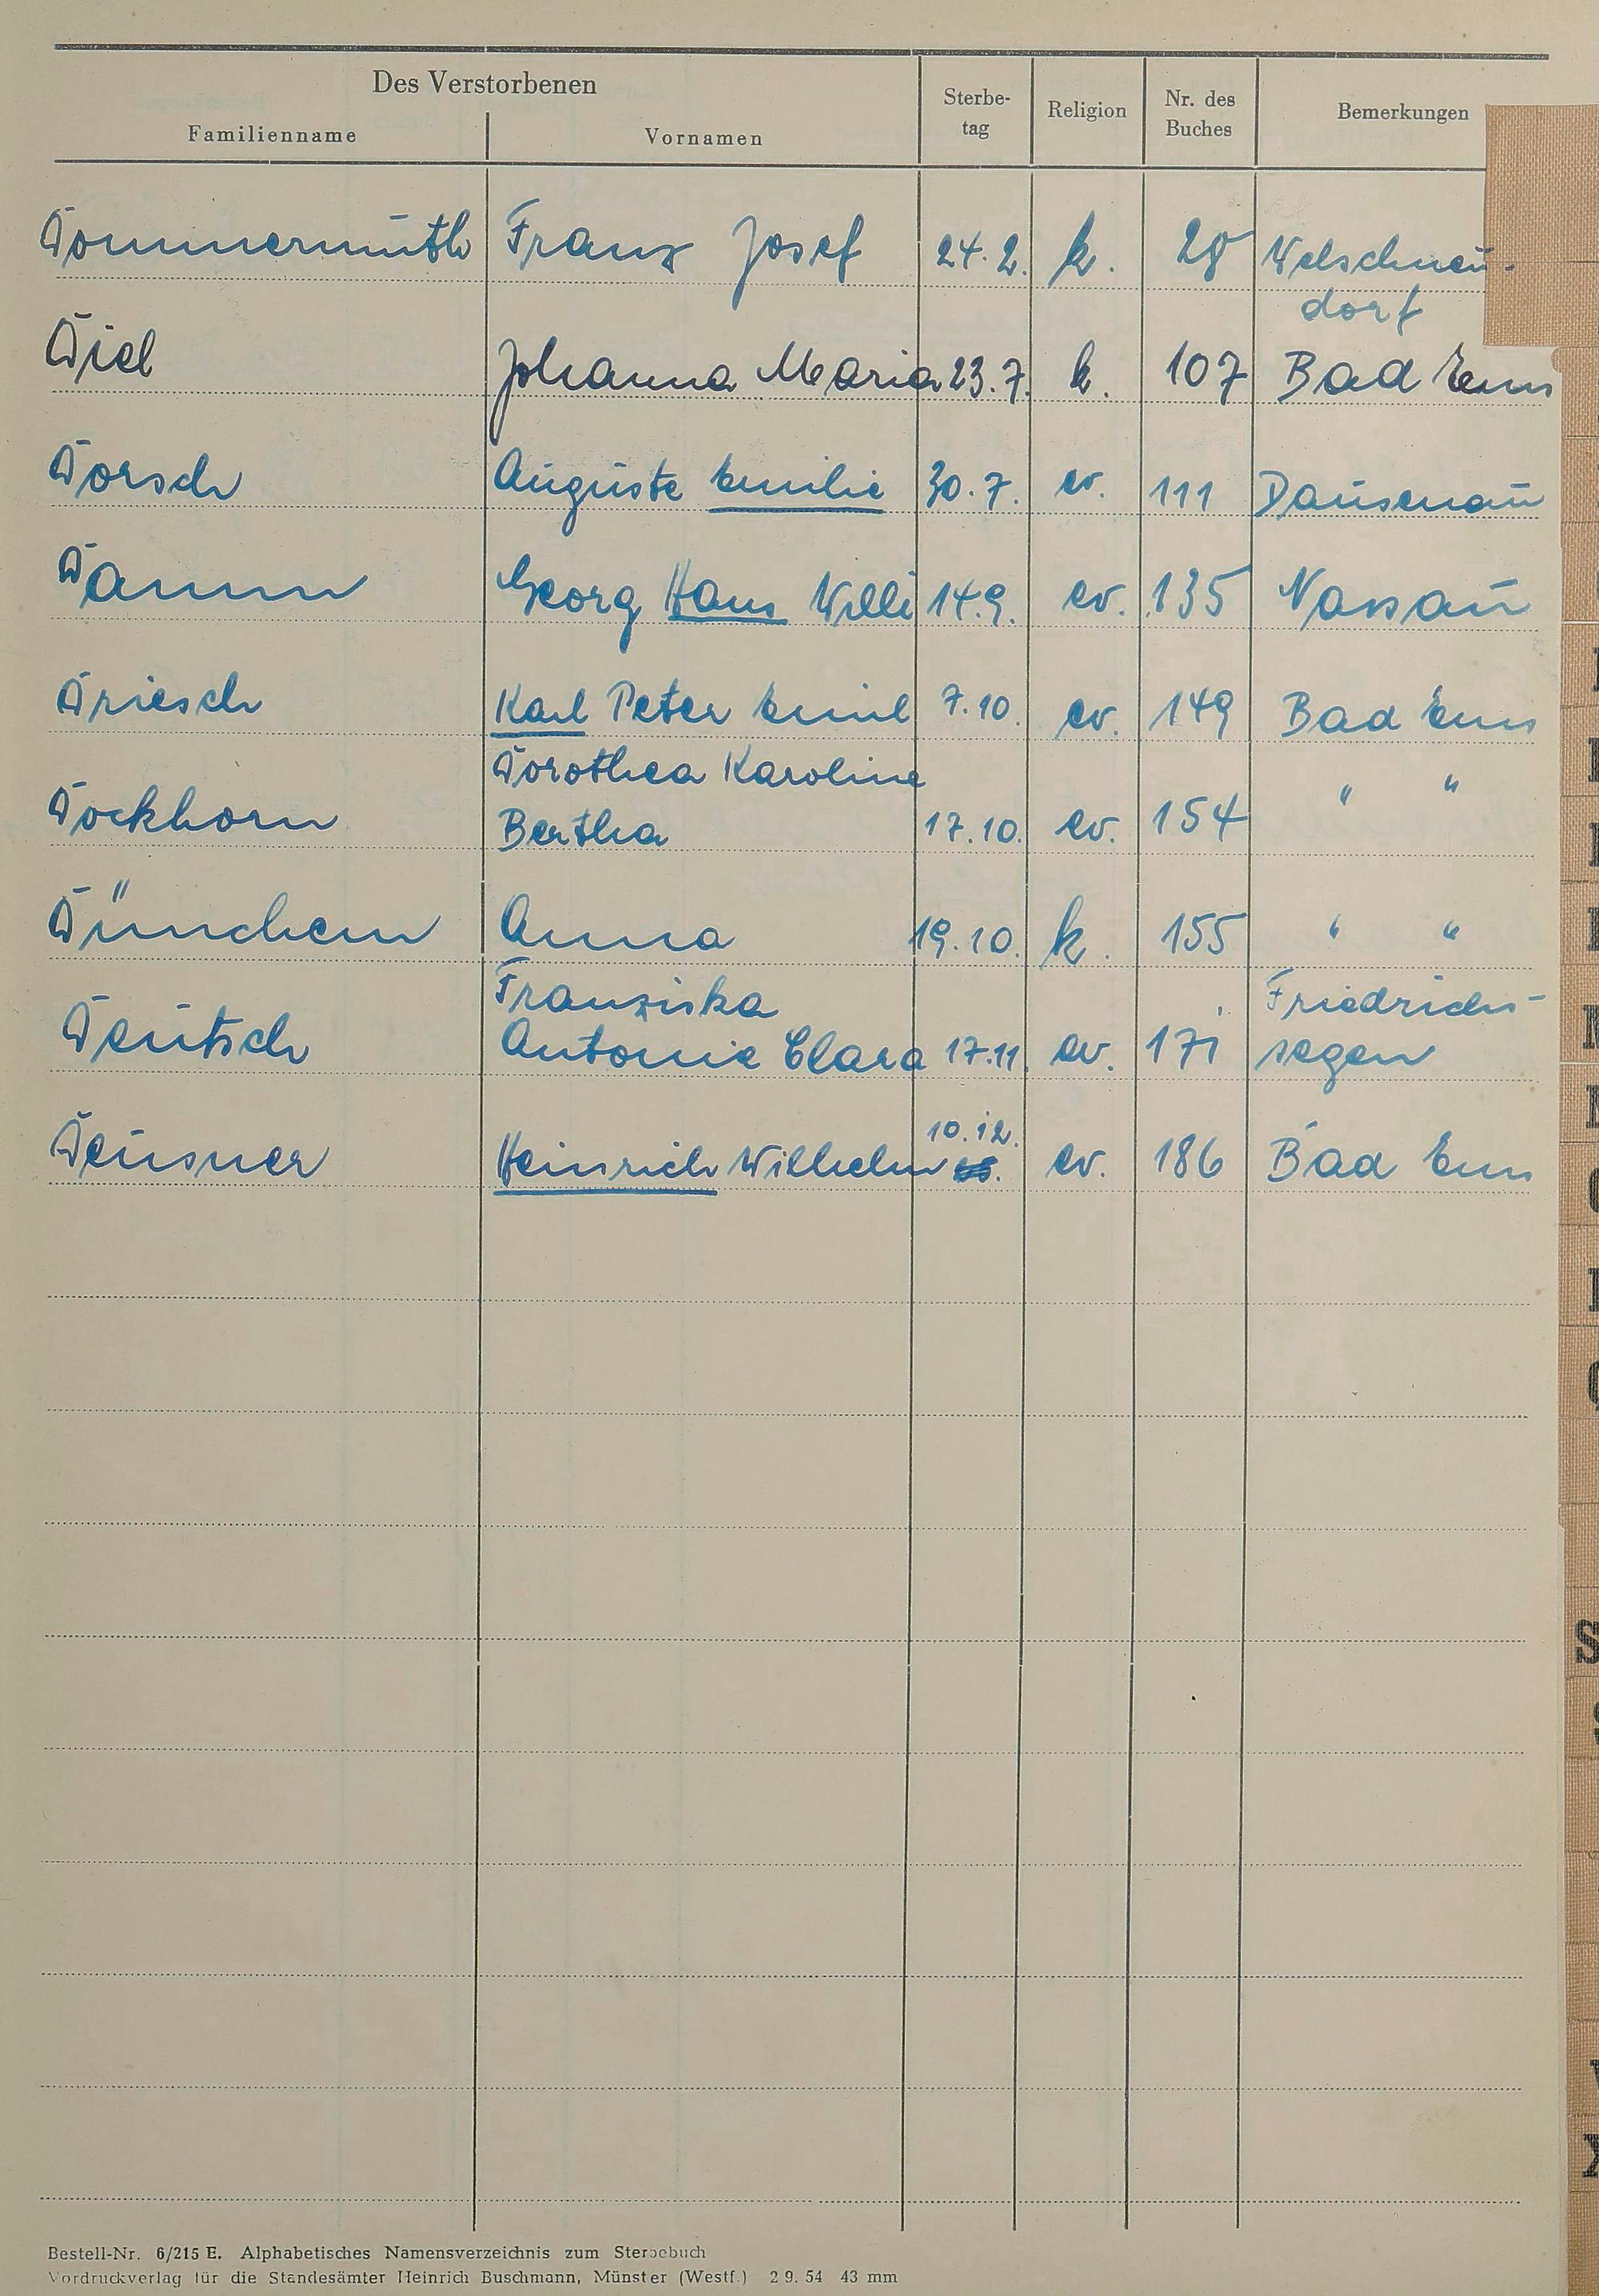 Des Verstorbenen
Familienname Vornamen Sterbe- tag Religion Nr. des Buches Bemerkungen
Dommermuth Franz Josef 24.2. k. 28 Welschneu-
dorf
Diel Johanna Maria 23.7. k. 107 Bad Ems
Dorsch Auguste Emilie 30.7. ev. 111 Dausenau
Damm Georg Hans Willi 14.9. ev. 135 Nassau
Driesch Karl Peter Emil 7.10. ev. 149 Bad Ems
Dorothea Karoline
Dockhorn Bertha 17.10. ev. 154 " "
Dünchem Anna 19.10. k. 155 " "
Franziska Friedrichs-
Deutsch Antonie Clara 17.11. ev. 171 segen
10.12.
Deusner Heinrich Wilhelm ev. 186 Bad Ems
S
Bestell-Nr. 6/215 E. Alphabetisches Namensverzeichnis zum Sterbebuch
Vordruckverlag für die Standesämter Heinrich Buschmann, Münster (Westf.) 2 9. 54 43 mm